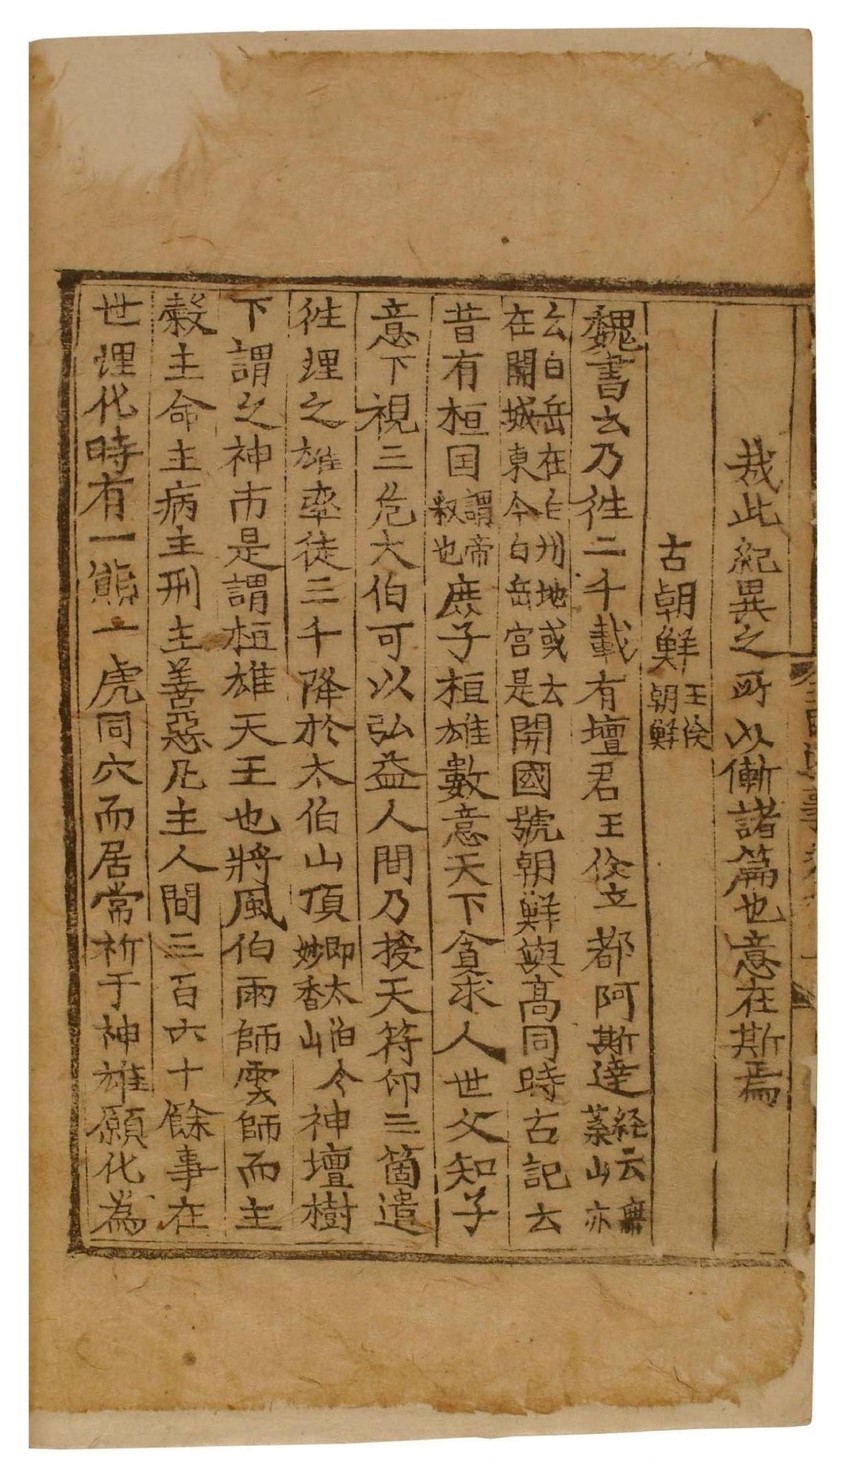 哉此紀異之所以慚諸篇也意在斯焉
古朝鮮 王倹朝鮮
魏書云乃往二千載有壇君王倹立都阿斯達 経云無葉山亦
云白岳在白州地或云在開城東今白岳宮是 開國號朝鮮與髙同時古記云
昔有桓囯 謂帝釈也 庶子桓雄數意天下貪求人世父知子
意下視三危大伯可以弘益人間乃授天符印三箇遣
徃理之雄率徒三千降於太伯山頂 即太伯今妙香山 神壇樹
下謂之神市是謂桓雄天王也將風伯雨師雲師而主
糓主命主病主刑主善惡凡主人間三百六十餘事在
世理化時有一熊一虎同穴而居常祈于神雄願化為